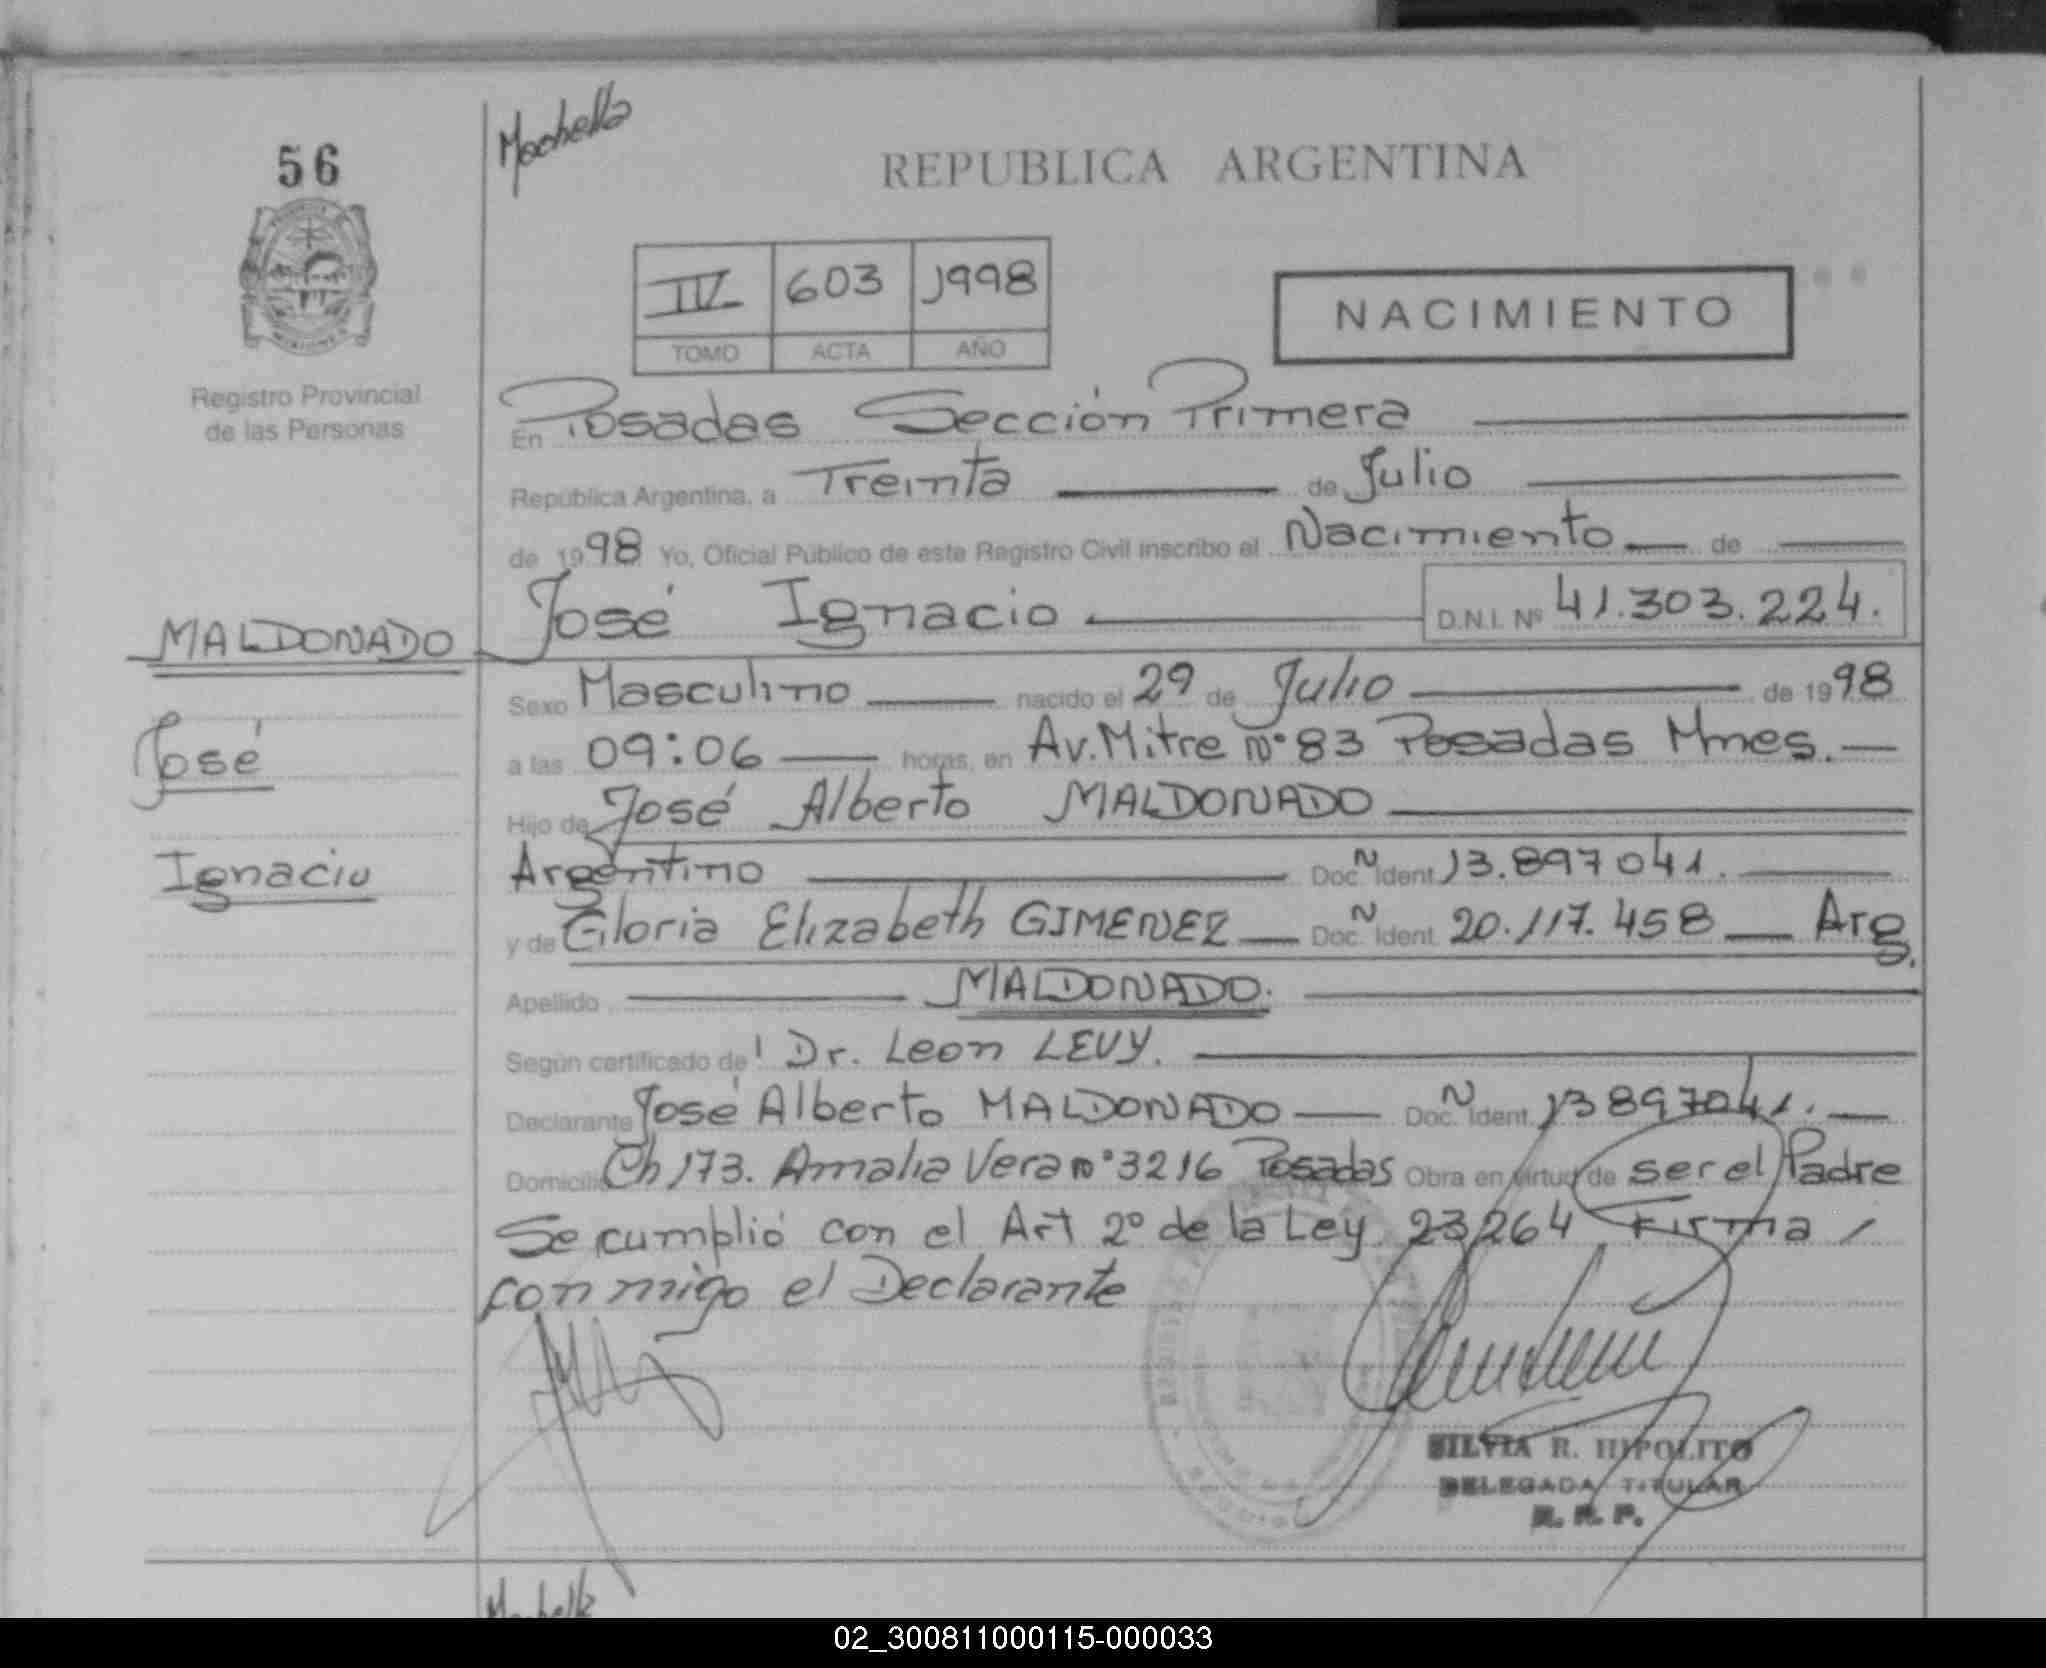 56
Registro Provincial
de las Personas
MALDONADO
José
Ignacio
REPUBLICA ARGENTINA
IV 603 1998
TOMO ACTA AÑO
NACIMIENTO
En Posadas Sección Primera
República Argentina, a Treinta de Julio
de 1998 Yo, Oficial Público de este Registro Civil inscribo el Nacimiento de
José Ignacio D.N.I. Nº 41.303.224.
Sexo Masculino nacido el 29 de Julio de 1998
a las 09:06 horas, en Av. Mitre Nº 83 Posadas Mnes.
Hijo de José Alberto MALDONADO
Argentino Doc. N Ident 13.897041.
y de Gloria Elizabeth GIMENEZ Doc. N Ident. 20.117.458 Arg.
Apellido MALDONADO.
Según certificado de Dr. Leon LEVY.
Declarante José Alberto MALDONADO Doc. N Ident. 13897041.
Domicilio Ch 173. Amalia Vera nº 3216 Posadas Obra en virtud de ser el Padre
Se cumplió con el Art 2º de la Ley 23264 Firma
conmigo el Declarante
SILVIA R. HIPOLITO
DELEGADA TITULAR
R. R. P.
02_300811000115-000033